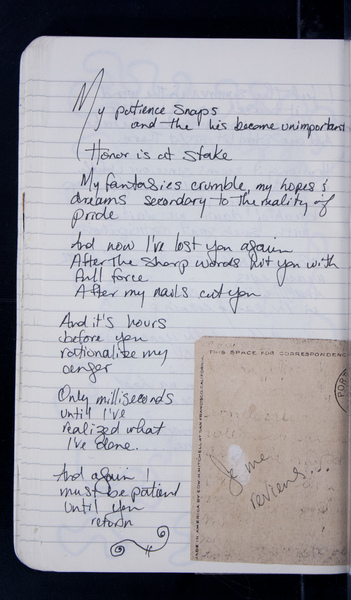 My patience snaps
and the his become unimportant
Honor is at stake
My fantasies crumble, my hopes &
dreams secondary to the reality of
pride
And now I've lost you again
After the sharp words hit you with
full force
After my nails cut you
And it's hours
before you
rationalize my
anger
Only milliseconds
until I've
realized what
I've done.
And again I
must be patient
until you
return
THIS SPACE FOR CORRESPONDENCE
MADE IN AMERICA BY EDW. H. MITCHELL AT SAN FRANCISCO, CALIFORNIA
Some
reviews...